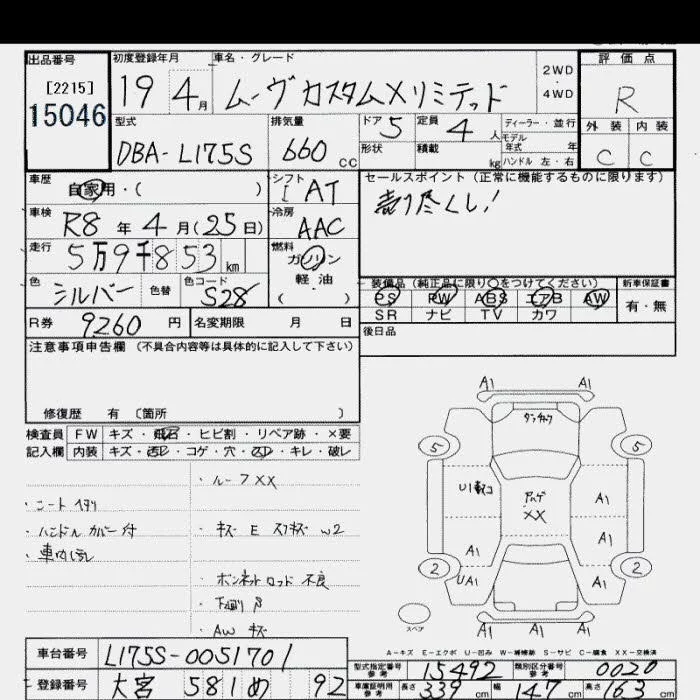 出品番号 初度登録年月 車名・グレード 評価点
[2215] 19 4月 ムーヴカスタムXリミテッド 2WD・4WD R
15046 型式 排気量 ドア 定員 ディーラー・並行 外装 内装
DBA-L175S 660cc 5 4人 モデル年式 年 C C
形状 積載 kg ハンドル 左・右
車歴 自家用・( ) シフト AT セールスポイント(正常に機能するものに限ります)
車検 R8年4月(25日) 冷房 AAC 売り尽くし!
走行 5万9千853km 燃料 ガソリン
軽油
( )
色 シルバー 色替 色コード S28 装備品(純正品に限り○をつけてください) 新車保証書
PS PW ABS エアB AW 有・無
SR ナビ TV カワ
R券 9260円 名変期限 月 日 後日品
注意事項申告欄(不具合内容等は具体的に記入して下さい)
修復歴 有〔箇所 〕
検査員 FW キズ・飛石・ヒビ割・リペア跡・×要
記入欄 内装 キズ・汚レ・コゲ・穴・スレ・キレ・破レ
・ルーフXX
・ハンドルカバー付 ・キズ E スリキズ W2
・ボンネットロッド不良
・AW キズ
A1 A1
5 5
XX
A1
A1 A1
2 2
UA1 A1
A1 A1 A1
スペア
A-キズ E-エクボ U-凹み W-補修跡 S-サビ C-腐食 XX-交換済
車台番号 L175S-0051701 型式指定番号 参考 15492 類別区分番号 参考 0020
登録番号 大宮 581 め 92 車庫証明用 参考 長さ 339cm 幅 147cm 高さ 163cm